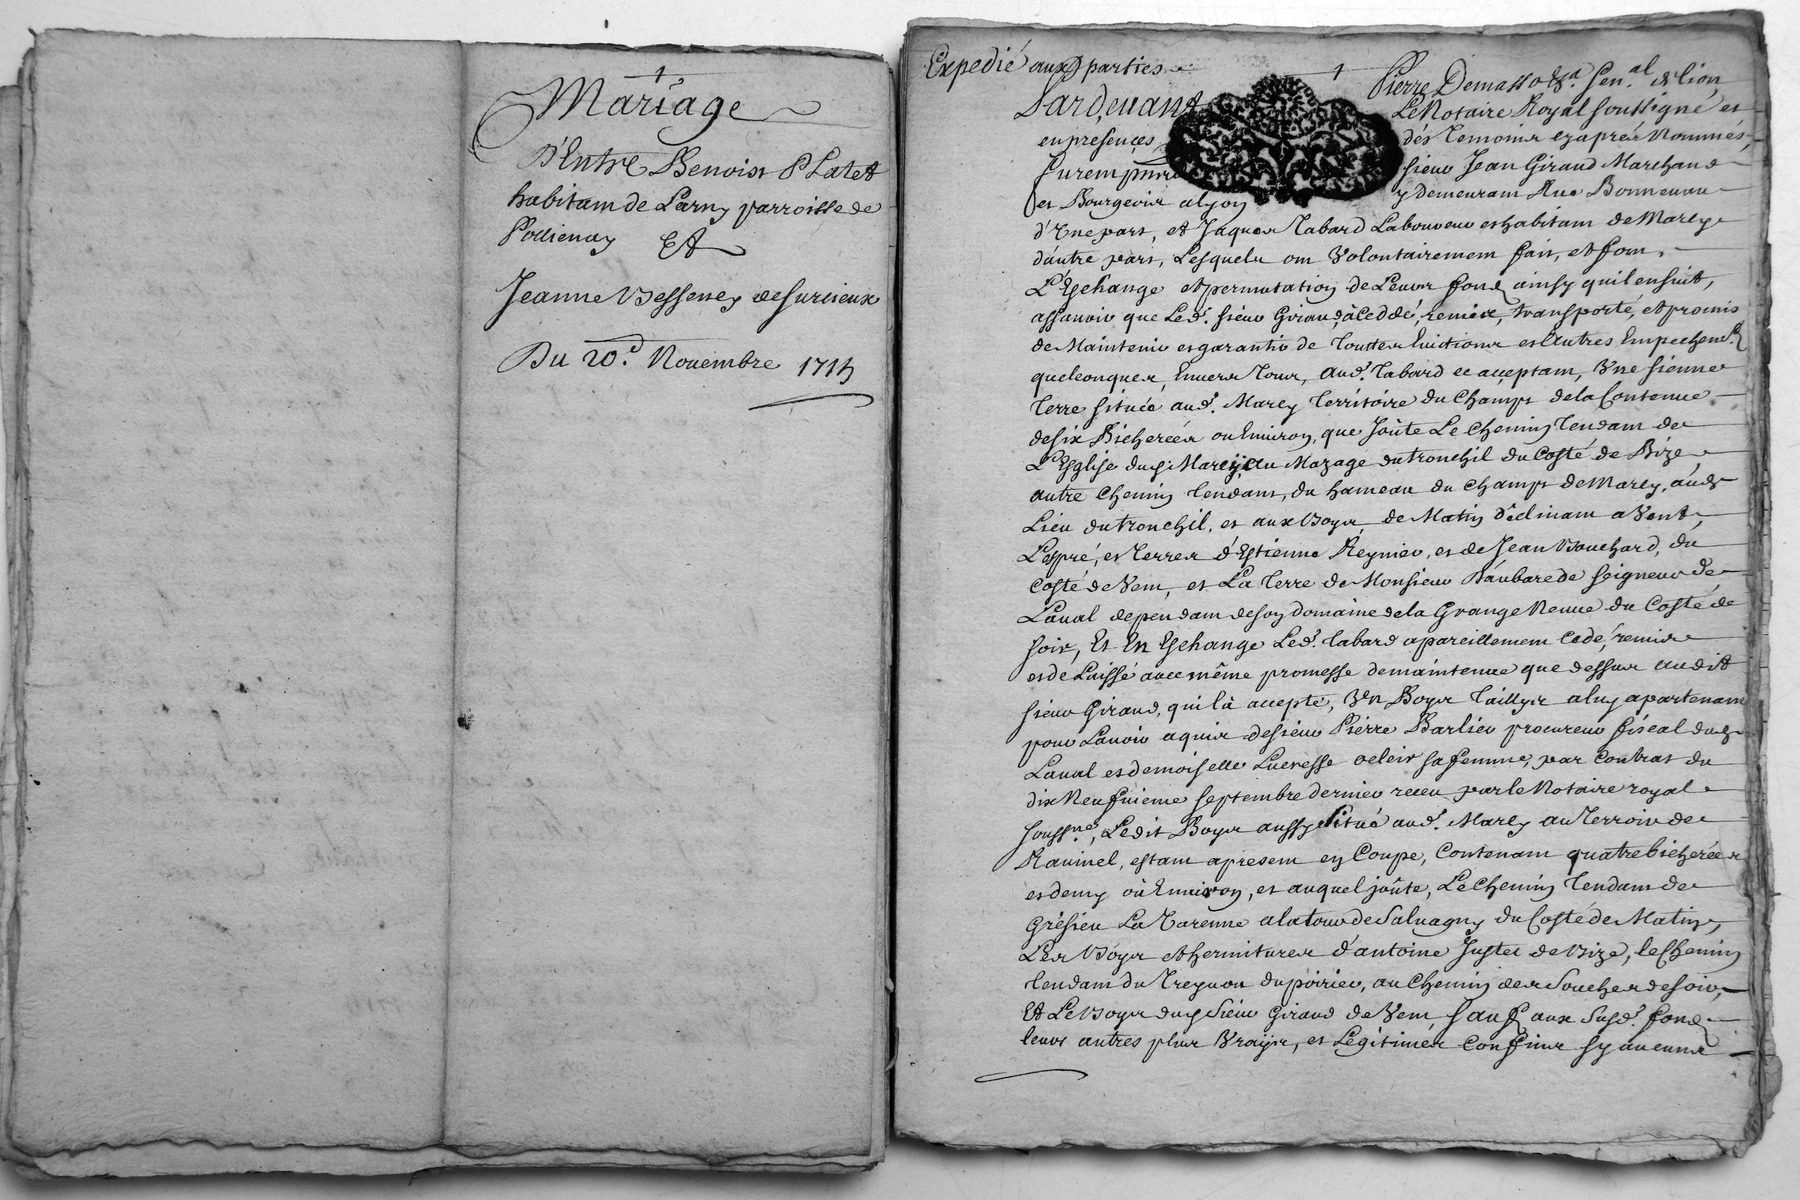 Mariage
D'Entre Benoist Platet
habitam de Larny parroisse de
Pollienay Et
Jeanne Vessenex de Surcieux
Du 20.e Novembre 1714
Expedié aux parties
Pierre Demasso &.a Sen.al de lion
Pardevant Le Notaire Royal soussigné et
en presences dés temoins cyaprés Nommés,
Furem pnts sieur Jean Giraud Marchand
et Bourgeois alyon y Demeuram Rue Bonneveau
d'Une part, et Jaques Tabard Laboureur et habitam de Marcy
dautre part, Lesquels om Volontairemem fait, et fom
L'Eschange et permutation de Leurs fond ainsy quil ensuit,
assavoir que Led. sieur Giraud à Ceddé, remis, transporté, et promis
de Maintenir et garantir de toutes Evictions et Autres Empechem.s
quelconques, Envers tous, aud. Tabard ce acceptam, Une sienne
terre située aud. Marcy territoire du Champs de la Contenue
de six Bicherées ou Environ, que Joûte Le chemin tendam de
L'Esglise dud Marcy, au Mazage du tronchil du Costé de Bize,
autre chemin tendant, du hameau du Champs de Marcy, aud
Lieu du tronchil, et aux Boys, de Matin déclinam a Vent,
Les pré, et terres d'Estienne Reynier, et de Jean Bouchard, du
Costé de Vem, et La terre de Monsieur Daubarede seigneur de
Laval dependam de son domaine de la Grange Neuve du Costé de
soir, Et En Eschange Led. Tabard a pareillemem Cedé, remis
et de Laissé avec même promesse de maintenue que dessus audit
sieur Giraud, qui là accepté, Un Boys taillys a luy apartenam
pour Lavoir aquis de sieur Pierre Barlier procureur fiscal dud
Laval et demoiselle Lucresse sa femme, par Contrat du
dix Neufvieme septembre dernier receu par le Notaire royal
soussné, Ledit Boys aussy situé aud. Marcy au Terroir de
Ravinel, estam apresem en Coupe, Contenam quatre bicherées
et demy ou Environ, et auquel joûte, Le Chemin tendam de
Grésieu La Varenne a la tour de Salvagny du Costé de Matin,
Les Boys et hermitures d'antoine Justet de Bize, le Chemin
tendam du Treyvou du poirier, au Chemin des Souches de soir,
Et Le Boys dud Sieur Giraud de Vem, sauf aux susd. fond
leurs autres plus Vrays, et Légitimes Confins sy aucuns